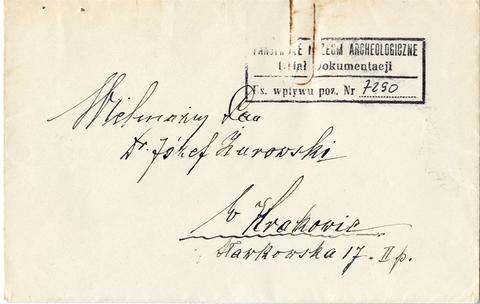 PAŃSTWOWE MUZEUM ARCHEOLOGICZNE
Dział Dokumentacji
Ks. wpływu poz. Nr 7290
Wielmożny Pan
Dr. Józef Żurowski
w Krakowie
17 - II p.